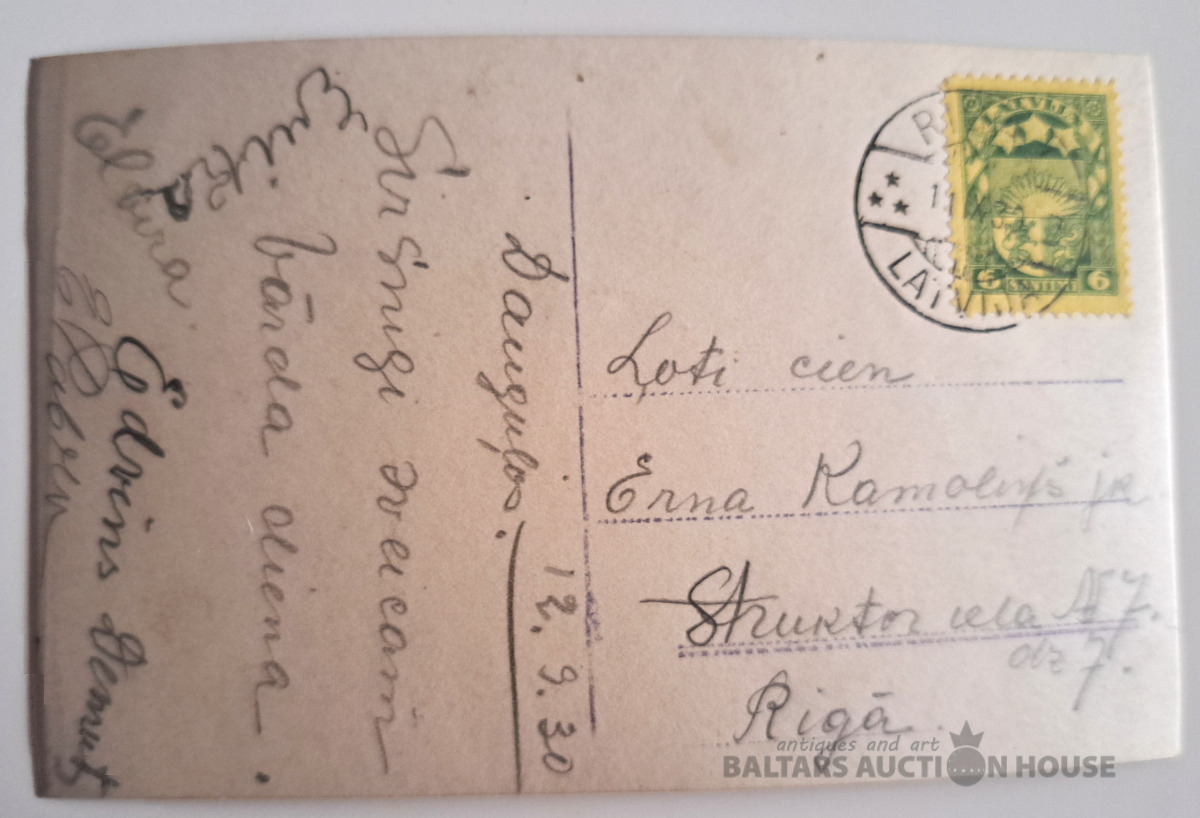 Dauguļos. 12. 9. 30
Sirsnigi sveicam
vārda diena.
Erika
Elfira
Edvins
LATVIJA
6 SANTIMI 6
LATVIJA
Ļoti cien
Erna
Struktor iela № 7.
dz 7.
Rigā
antiques and art
BALTARS AUCTION HOUSE